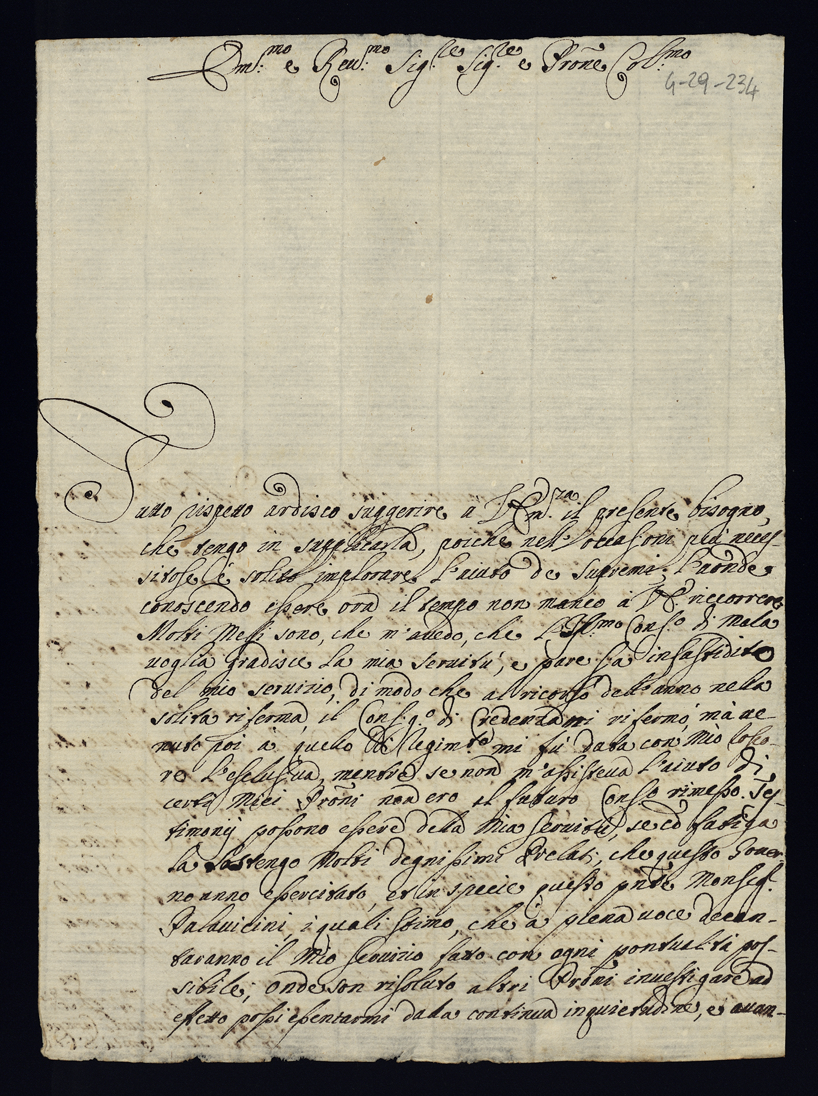 Em:mo e Reu:mo Sig:le Sig:le e Prone Col:mo
4-29-234
Tutto rispetto ardisco suggerire a V. Em:za il presente bisogno,
che tengo in supplicarla, poiche nell'occasioni più neces-
sitose é solito implorare l'aiuto de Supremi; Laonde
conoscendo essere ora il tempo non manco à V. E. ricorrere
Molti Mesi sono, che m'auedo, che L'Ill:mo Con:so di mala
uoglia gradisce la mia seruitù, e pare sia infastidito
del mio seruizio, di modo che al ricorso dell'anno nella
solita riferma, il Consig:o di Credenza mi rifermò, mà ue-
nuto poi à quello mi fù data con Mio Rosso-
re L'esclusiua, mentre se non m'assisteua l'aiuto di
certi Miei Proni non ero il futuro Con:so rimesso. Tes-
timonij possono essere della Mia Seruitù, se con fatiga
la sostengo Molti degnissimi Prelati, che questo Gouer-
no anno esercitato, et in specie questo pnte Monsig:
Palauicini i quali stimo, che à plena uoce decan-
taranno il Mio Seruizio fatto con ogni pontualità pos-
sibile; onde son risoluto altri Proni inuestigare ad
effetto possi esentarmi dalla continua inquietudine, e auan-